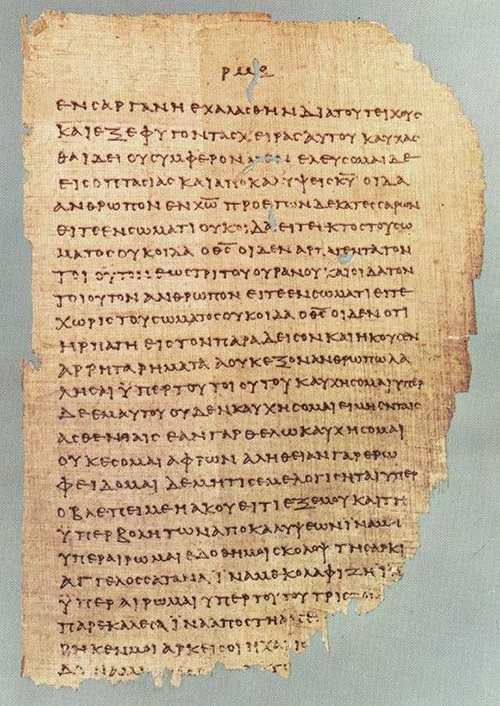 ΕΝϹΑΡΓΑΝΗΕΧΑΛΑϹΘΗΝΔΙΑΤΟΥΤΕΙΧΟΥϹ
ΚΑΙΕΞΕΦΥΓΟΝΤΑϹΧΕΙΡΑϹΑΥΤΟΥΚΑΥΧΑϹ
ΘΑΙΔΕΙΟΥϹΥΜΦΕΡΟΝ ΕΛΕΥϹΟΜΑΙΔΕ
ΕΙϹΟΠΤΑϹΙΑϹΚΑΙΑΠΟΚΑΛΥΨΕΙϹΚ̅Υ̅ΟΙΔΑ
ΑΝΘΡΩΠΟΝΕΝΧ̅Ω̅ΠΡΟΕΤΩΝΔΕΚΑΤΕϹϹΑΡΩΝ
ΕΙΤΕΕΝϹΩΜΑΤΙΟΥΚΟΙΔΑΕΙΤΕΕΚΤΟϹΤΟΥϹΩ
ΜΑΤΟϹΟΥΚΟΙΔΑΟΘ̅Ϲ̅ΟΙΔΕΝΑΡΠΑΓΕΝΤΑΤΟΝ
ΤΟΙΟΥΤΟΝΕΩϹΤΡΙΤΟΥΟΥΡΑΝΟΥΚΑΙΟΙΔΑΤΟΝ
ΤΟΙΟΥΤΟΝΑΝΘΡΩΠΟΝΕΙΤΕΕΝϹΩΜΑΤΙΕΙΤΕ
ΧΩΡΙϹΤΟΥϹΩΜΑΤΟϹΟΥΚΟΙΔΑΟΘ̅Ϲ̅ΟΙΔΕΝΟΤΙ
ΗΡΠΑΓΗΕΙϹΤΟΝΠΑΡΑΔΕΙϹΟΝΚΑΙΗΚΟΥϹΕΝ
ΑΡΡΗΤΑΡΗΜΑΤΑΑΟΥΚΕΞΟΝΑΝΘΡΩΠΩΛΑ
ΛΗϹΑΙΫΠΕΡΤΟΥΤΟΙΟΥΤΟΥΚΑΥΧΗϹΟΜΑΙΥΠΕΡ
ΔΕΕΜΑΥΤΟΥΟΥΔΕΝΚΑΥΧΗϹΟΜΑΙΕΙΜΗΕΝΤΑΙϹ
ΑϹΘΕΝΕΙΑΙϹΕΑΝΓΑΡΘΕΛΩΚΑΥΧΗϹΟΜΑΙ
ΟΥΚΕϹΟΜΑΙΑΦΡΩΝΑΛΗΘΕΙΑΝΓΑΡΕΡΩ
ΦΕΙΔΟΜΑΙΔΕΜΗΤΙϹΕΜΕΛΟΓΙϹΗΤΑΙΥΠΕΡ
ΟΒΛΕΠΕΙΜΕΗΑΚΟΥΕΙΤΙΕΞΕΜΟΥΚΑΙΤΗ
ΫΠΕΡΒΟΛΗΤΩΝΑΠΟΚΑΛΥΨΕΩΝΪΝΑΜΗ
ΥΠΕΡΑΙΡΩΜΑΙΕΔΟΘΗΜΟΙϹΚΟΛΟΨΤΗϹΑΡΚΙ
ΑΓΓΕΛΟϹϹΑΤΑΝΑΪΝΑΜΕΚΟΛΑΦΙΖΗΪΝΑ
ΫΠΕΡΑΙΡΩΜΑΙΥΠΕΡΤΟΥΤΟΥΤΡΙϹ
ΠΑΡΕΚΑΛΕϹΑΪΝΑΑΠΟϹΤΗ
ΡΗΚΕΝΜΟΙΑΡΚΕΙϹΟΙΗΧΑΡΙϹ
ΔΥΝΑΜ